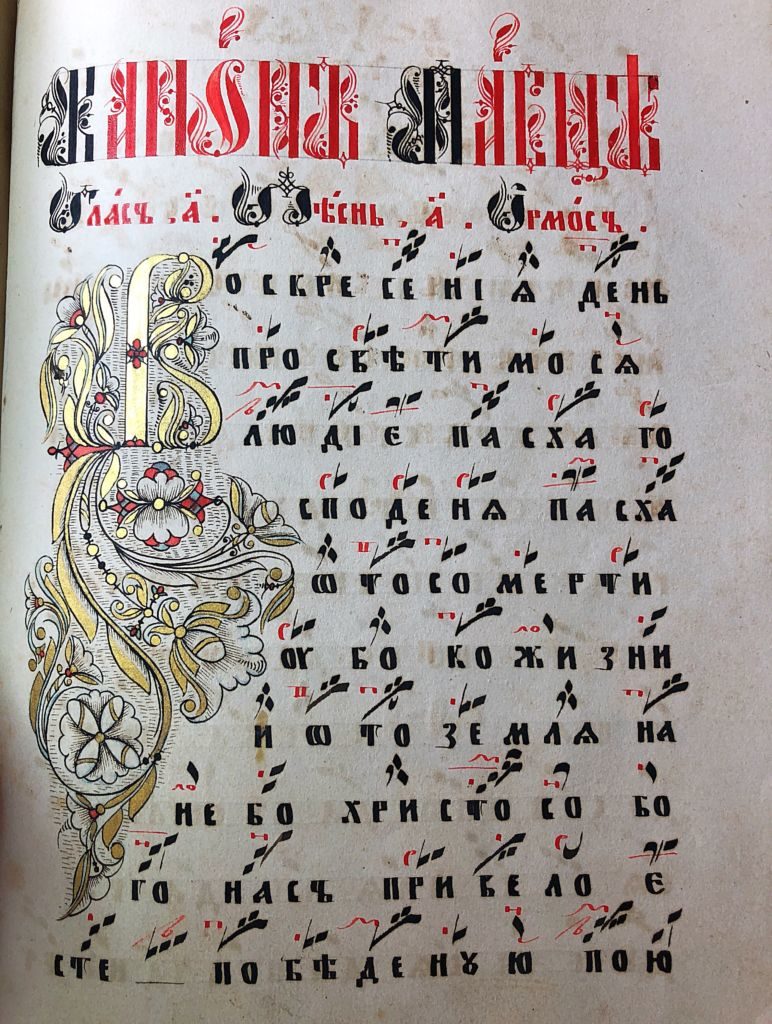 Канѡ́нъ Па́сцѣ
Гла́съ, а҃. Пѣ́снь, а҃. Ірмо́съ.
Воскресенїѧ день
просвѣтимосѧ
людїє пасха го
споденѧ пасха
ѡтосомерти
оубо ко жизни
и ѡто землѧ на
небо христосо бо
го насъ привело є
сте побѣденꙋю пою